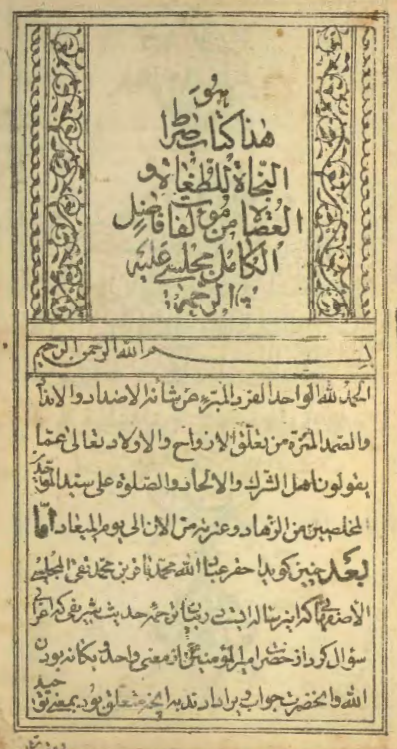 هو
هذا کتاب صراط
النجاة للطغاة و
العصاة من مؤلفا فاضل
الکامل مجلسی علیه
الرحمة
بسم الله الرحمن الرحیم
الحمد لله الواحد الفرد المبرء عن شائبة الاضداد والانداد
والصمد المنزه من تعلق الازواج والاولاد تعالی عما
یقولون اهل الشرک والالحاد والصلوة علی سید الموحدین
المخلصین من الزهاد وعترته من الان الی یوم المیعاد اما
بعد چنین کوید احقر عباد الله محمد باقر بن محمد تقی المجلسی
الاصفهانی که این رساله ایست در بیان ترجمه حدیث شریفی که اعرابی
سؤال کرد از حضرت امیر المؤمنین از معنی واحد و یکانه بودن
الله و انحضرت جواب ویرا دادند به انچه متعلق بود بمعنی توحید